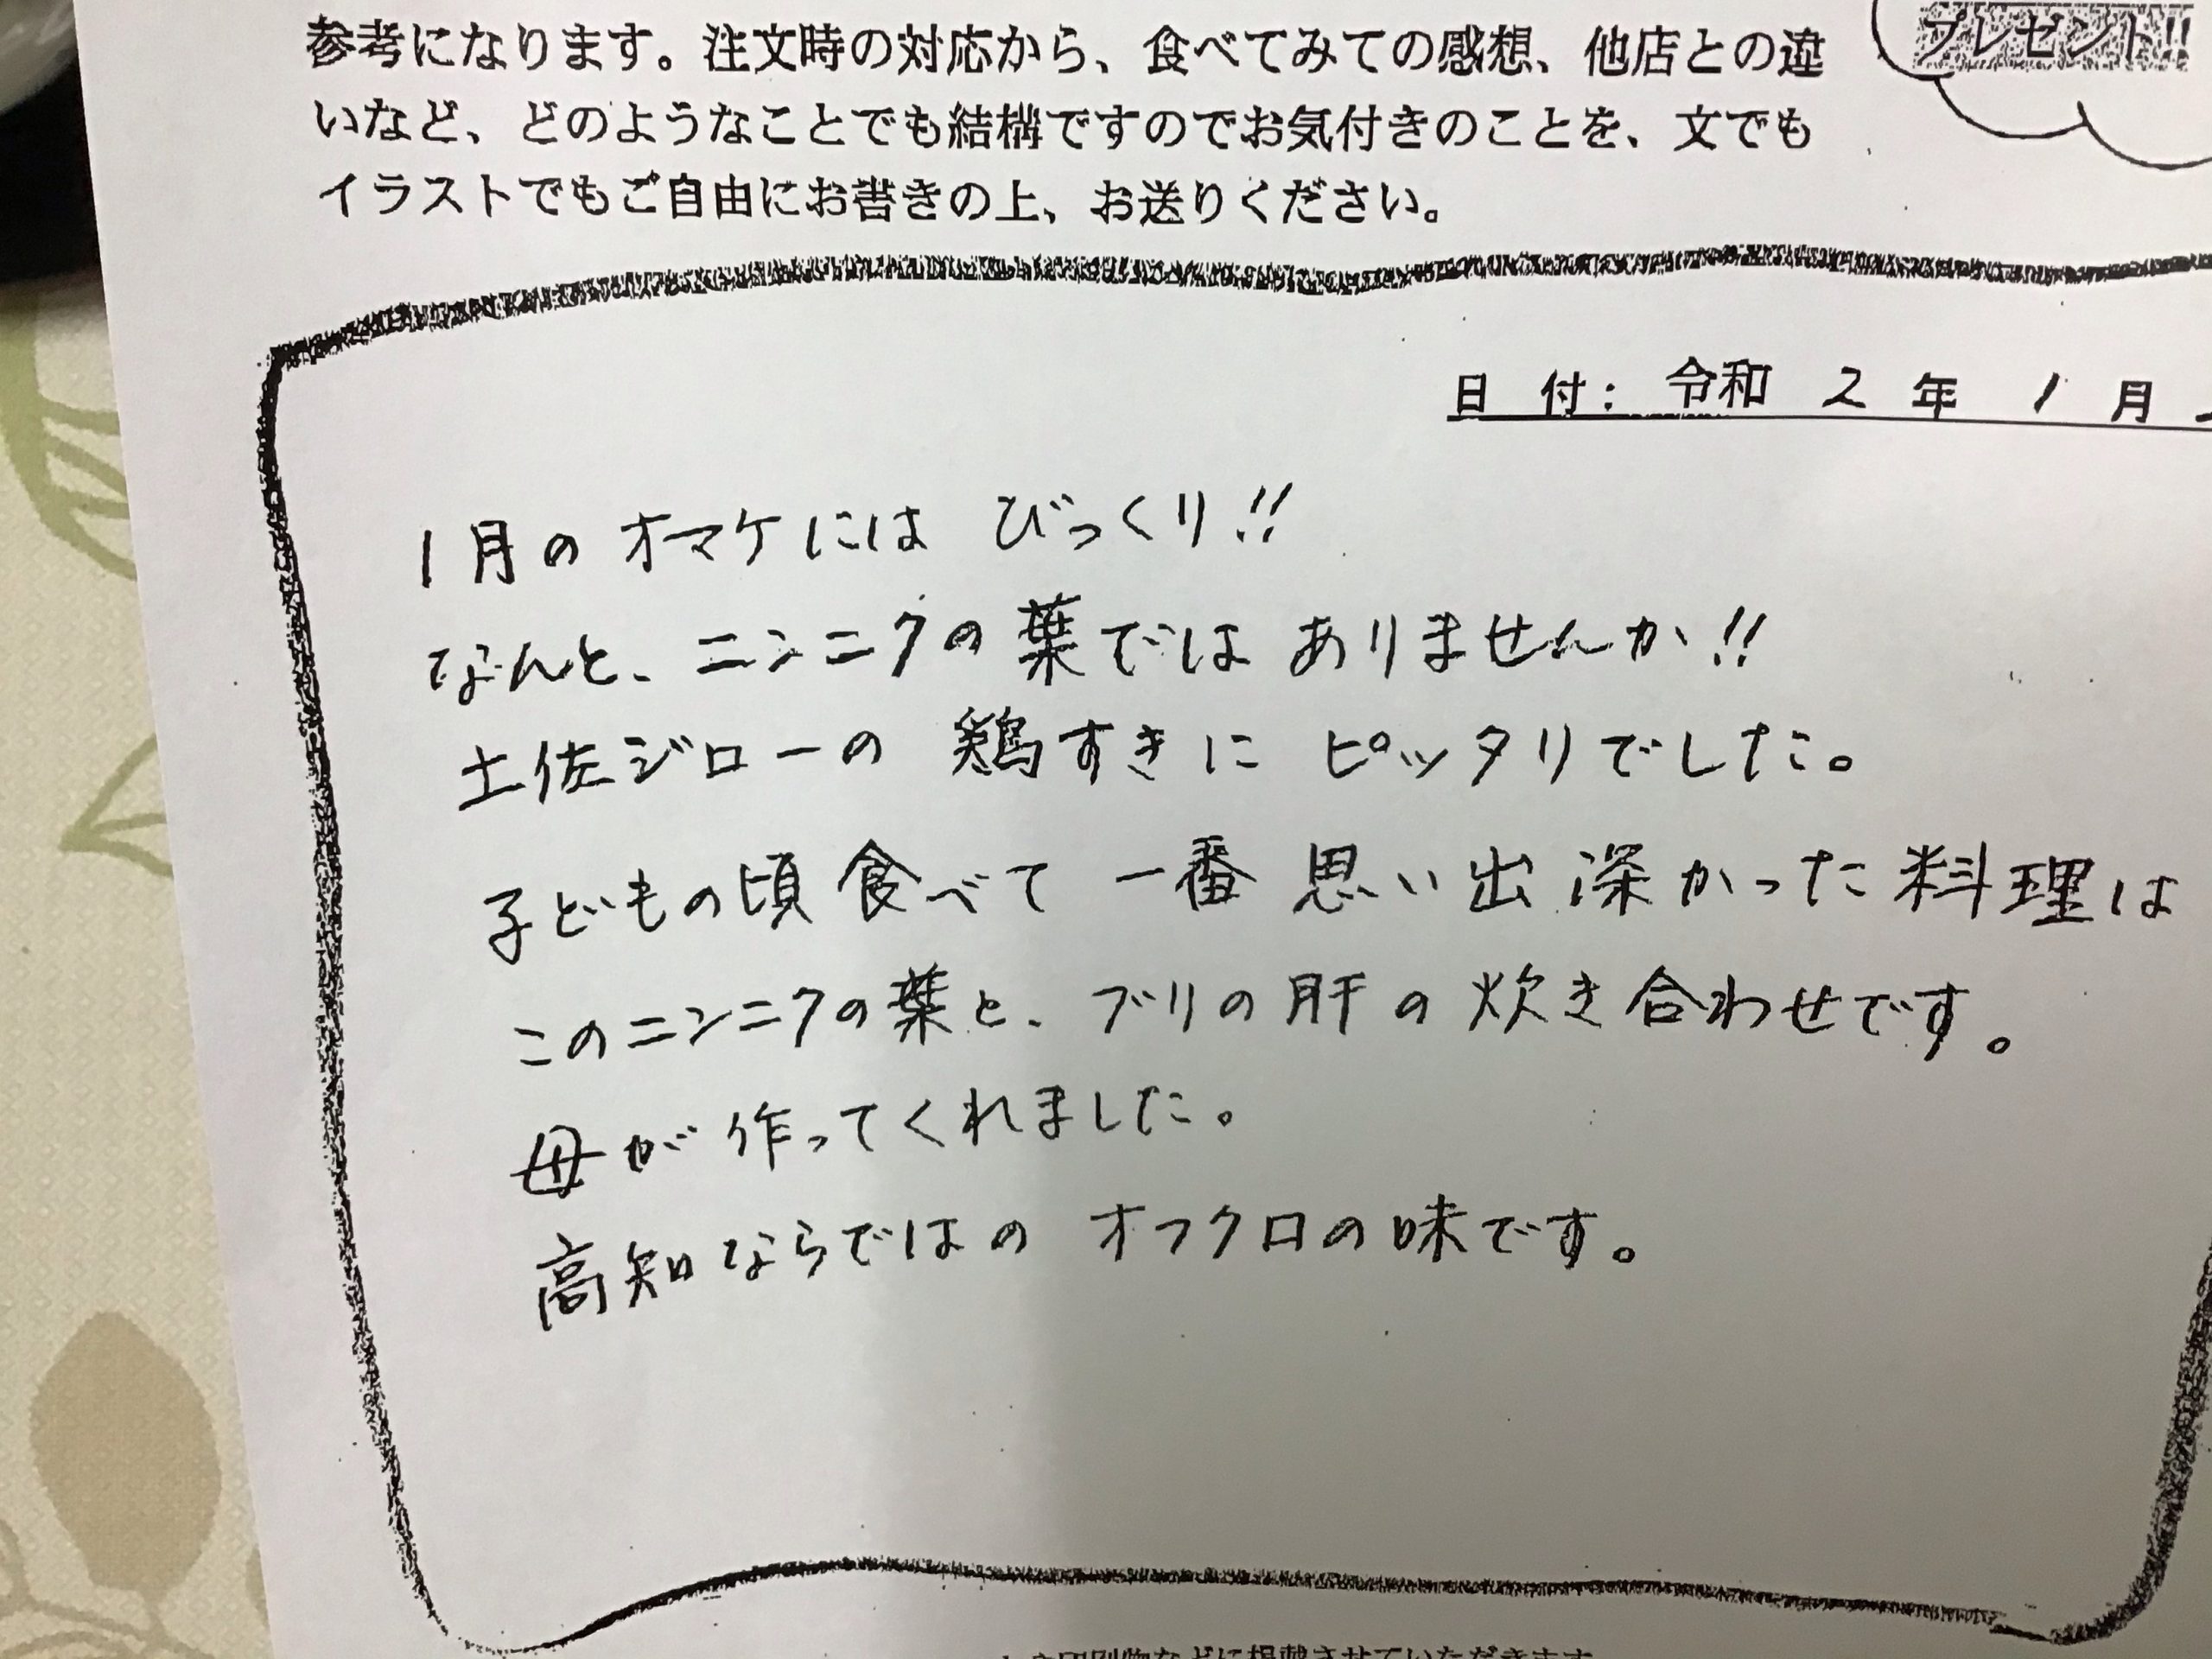 参考になります。注文時の対応から、食べてみての感想、他店との違
いなど、どのようなことでも結構ですのでお気付きのことを、文でも
イラストでもご自由にお書きの上、お送りください。
プレゼント!!
日 付: 令和 2 年 1 月
1月のオマケには びっくり!!
なんと、ニンニクの葉では ありませんか!!
土佐ジローの 鶏すきに ピッタリでした。
子どもの頃 食べて 一番 思い出 深かった料理は
このニンニクの葉と、ブリの肝の炊き合わせです。
母が 作ってくれました。
高知ならではの オフクロの味です。
印刷物などに掲載させていただきます